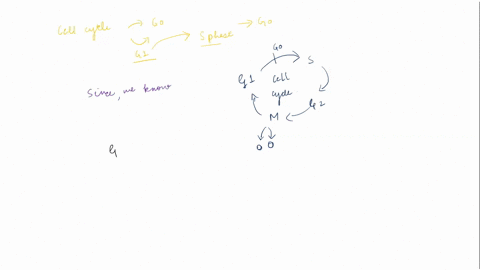 Cell cycle → G0
G2 → S phase → G0
Since, we know
G0
G1 S
Cell
cycle
G2
M
G